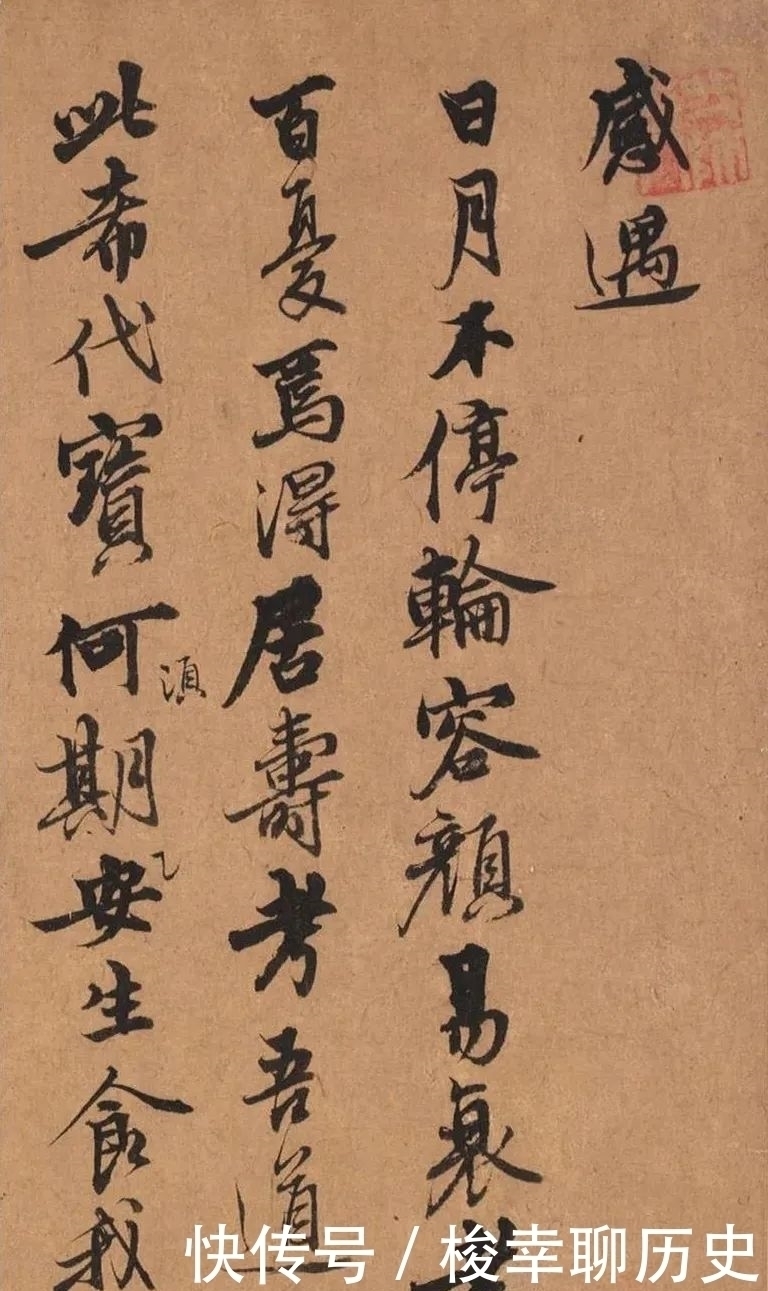 感遇
日月不停輪容顏易衰
百憂焉得居壽考吾道
此希代寶何期安生食我
須
快传号 / 梭幸聊历史